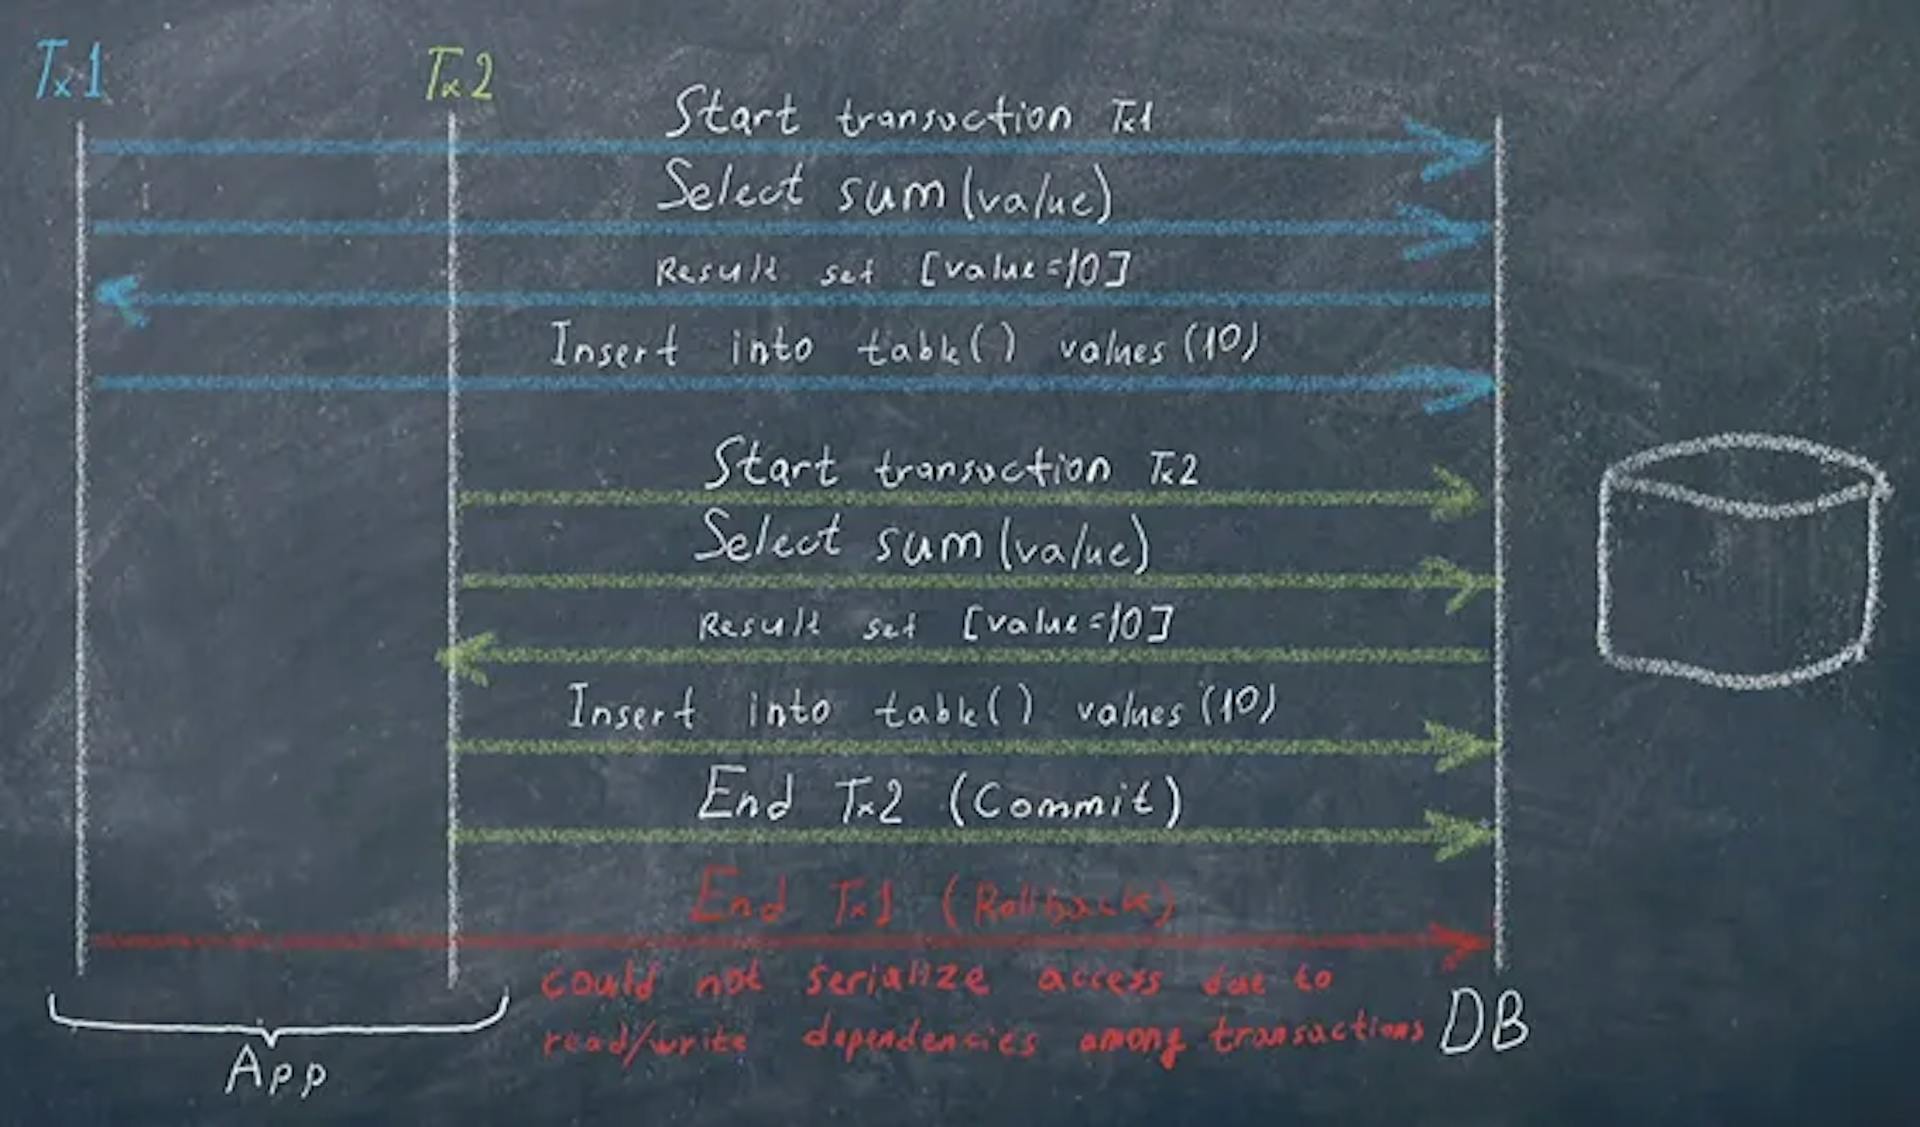 Tx1
Tx2
Start transaction Tx1
Select sum(value)
Result set [value=10]
Insert into table() values(10)
Start transaction Tx2
Select sum(value)
Result set [value=10]
Insert into table() values(10)
End Tx2 (Commit)
End Tx1 (Rollback)
could not serialize access due to
read/write dependencies among transactions
DB
App